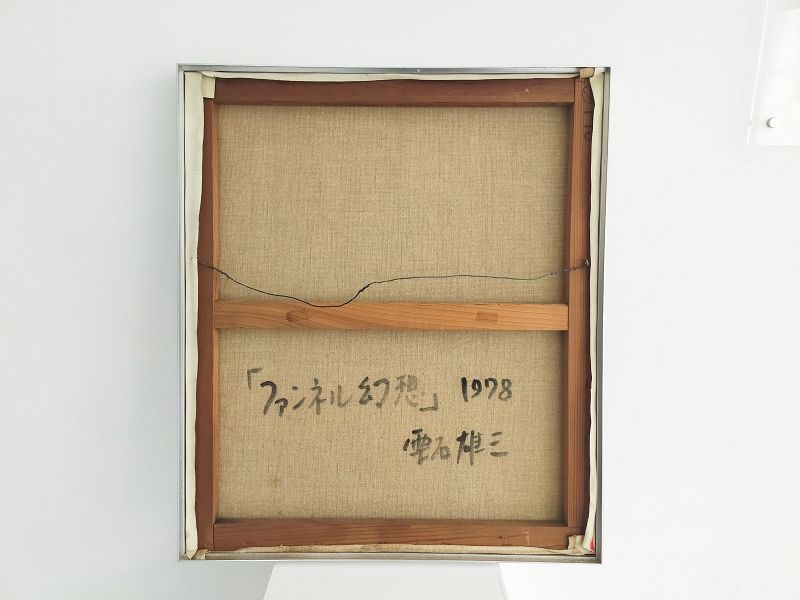 「ファンネル幻想」 1978
雫石雄三